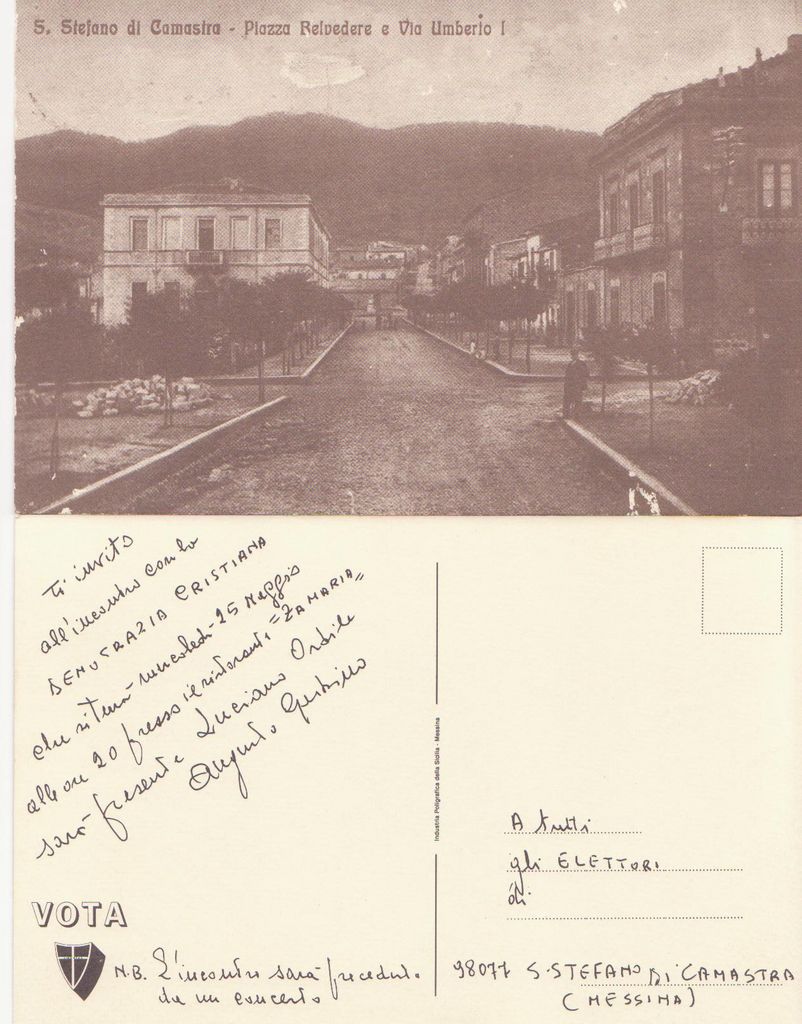 S. Stefano di Camastra - Piazza Belvedere e Via Umberto I
Ti invito
all'incontro con la
DEMOCRAZIA CRISTIANA
che si terrà mercoledì 25 Maggio
alle ore 20 presso il ristorante "ZAMARIA"
sarà presente Luciano Ordile
Augusto
VOTA
N.B. L'incontro sarà preceduto
da un concerto
Industria Poligrafica della Sicilia - Messina
A tutti
gli ELETTORI
di
98077 S. STEFANO DI CAMASTRA
(MESSINA)